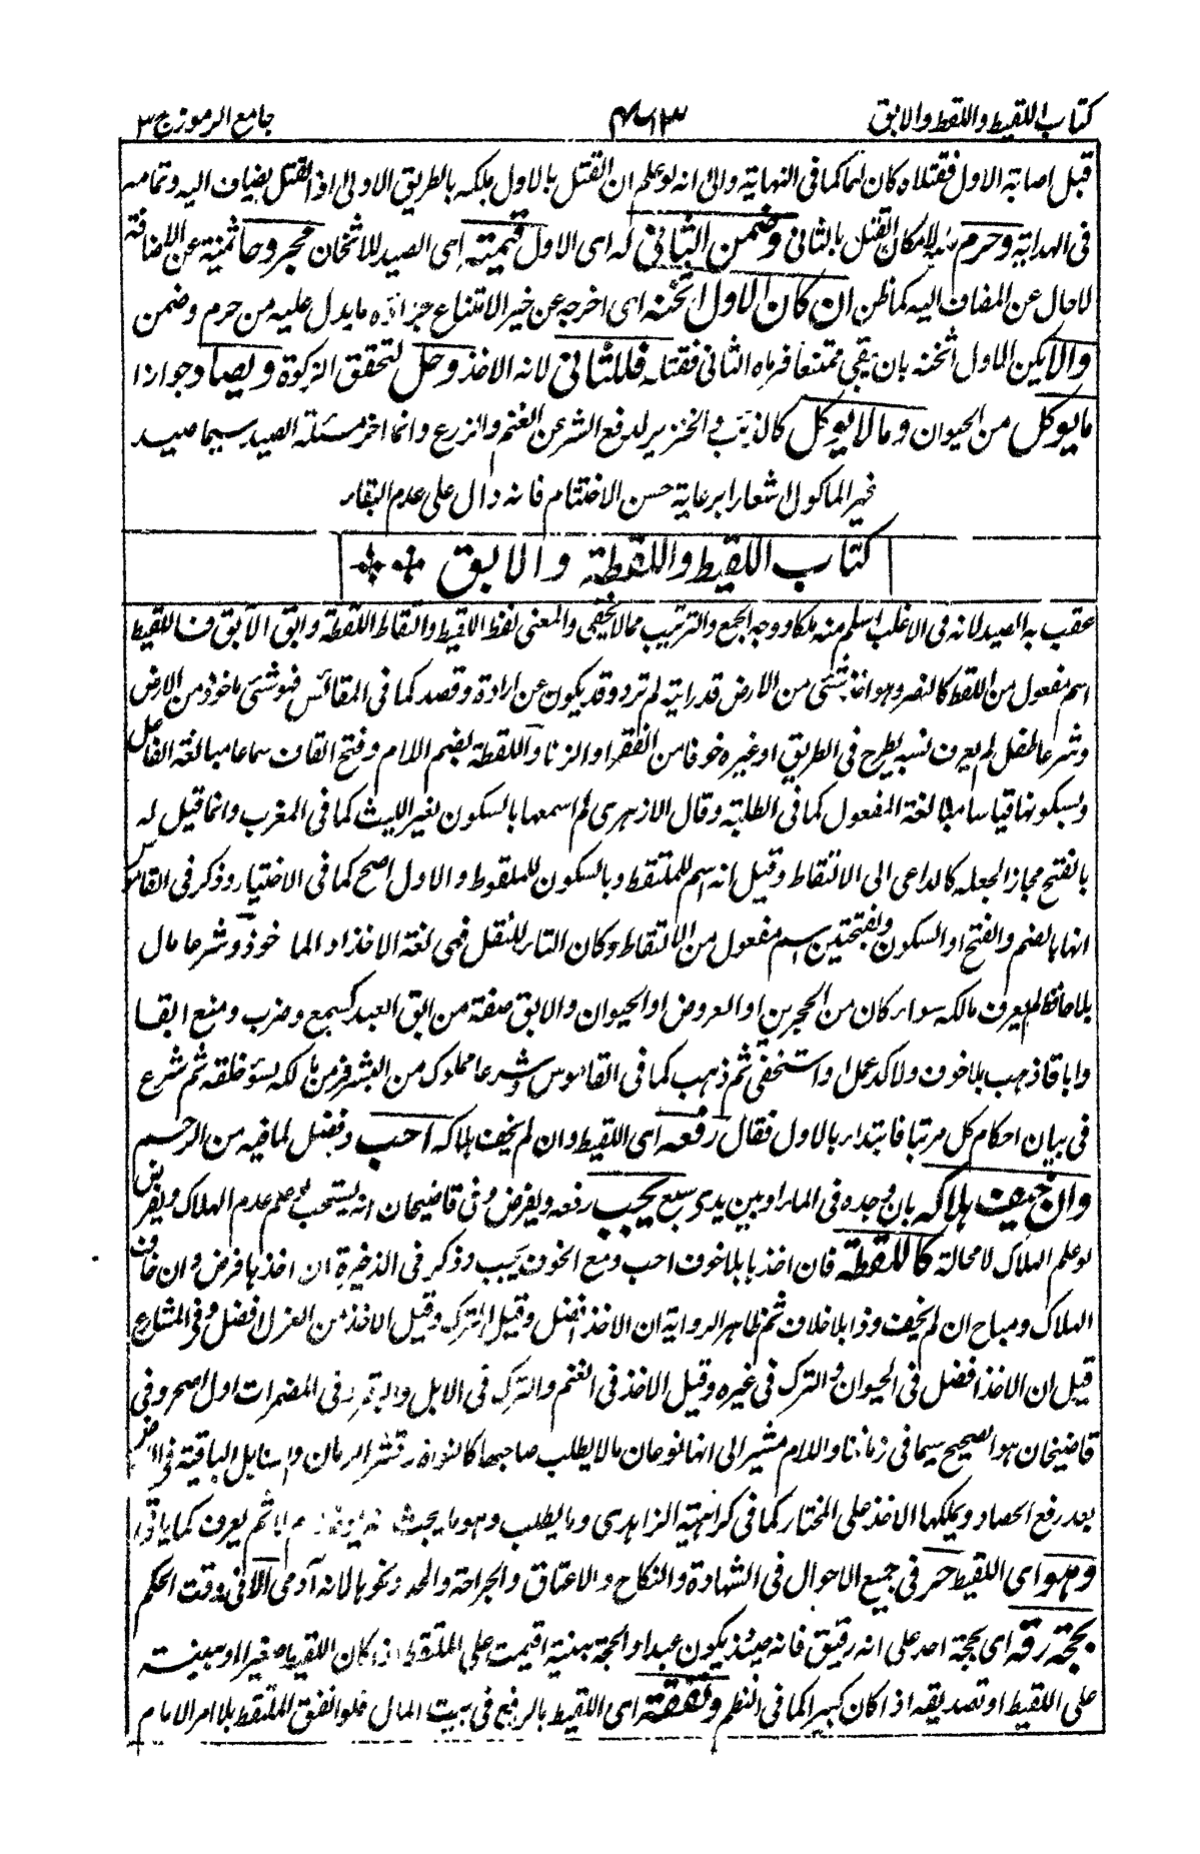 كتاب اللقيط واللقطة والابق
جامع الرموز ج ٣
قبل اصابة الاول فقتلاه كان لهما كما فى النهاية والى انه لو علم ان القتل بالاول ملكه بالطريق الاولى اذ القتل يضاف اليه وتمامه
فى الهداية وحرم لامكان القتل بالثانى وضمن الثانى له اى الاول قيمته اى الصيد للاثخان مجروحا ثمنية عن الاضافة
لا حال عن المضاف اليه كما ظن ان كان الاول اثخنه اى اخرجه عن حيز الامتناع جزاؤه ما يدل عليه من حرم وضمن
والا يكن الاول اثخنه بان بقى ممتنعا فرماه الثانى فقتله فللثانى لانه الاخذ وحل لتحقق الزكوة ويصاد جوازا
ما يوكل من الحيوان وما لا يوكل كالذئب والخنزير لدفع الشر عن الغنم والزرع وانما اخر مسئلة الصيد سيما صيد
غير الماكول اشعارا برعاية حسن الاختتام فانه دال على عدم البقاء
كتاب اللقيط واللقطة والابق
عقب به الصيد لانه فى الاغلب اسلم منه ملكا ووجه الجمع والترتيب مما لا يخفى والمعنى لفظ اللقيط والتقاط اللقطة وابق الآبق فاللقيط
اسم مفعول من اللقط كالنصر وهو اخذ شئى من الارض قد رايته لم ترد وقد يكون عن ارادة وقصد كما فى المقائس فهو شئى ماخوذ من الارض
وشرعا طفل لم يعرف نسبه يطرح فى الطريق او غيره خوفا من الفقر او الزنا واللقطة بضم اللام وفتح القاف سماعا مبالغة الفاعل
وبسكونها قياسا مبالغة المفعول كما فى الطلبة وقال الازهرى لم اسمعها بالسكون لغير الليث كما فى المغرب وانما قيل له
بالفتح مجازا لجعله كالداعى الى الالتقاط وقيل انه اسم للملتقط وبالسكون للملقوط والاول اصح كما فى الاختيار وذكر فى القاموس
انها بالضم والفتح او السكون وبفتحتين اسم مفعول من الالتقاط وكان التاء للنقل فهى لغة الاخذ او الماخوذ وشرعا مال
بلا حافظ لم يعرف مالكه سواء كان من الحجرين او العروض او الحيوان والابق صفة من ابق العبد كسمع وضرب ومنع ابقا
واباقا ذهب بلا خوف ولا كد عمل او استخفى ثم ذهب كما فى القاموس وشرعا مملوك من البشر فر من مالكه لسوء خلقه ثم شرع
فى بيان احكام كل مرتبا فابتداء بالاول فقال رفعه اى اللقيط وان لم يخف هلاكه احب وفضل لما فيه من الرحم
وان خيف هلاكه بان وجده فى الماء او بين يدى سبع يجب رفعه ويفرض وفى قاضيخان انه يستحب لو علم عدم الهلاك ويفرض
لو علم الهلاك لا محالة كاللقطة فان اخذها بلا خوف احب ومع الخوف يجب وذكر فى الذخيرة ان اخذها فرض ان خاف
الهلاك ومباح ان لم يخف وذا بلا خلاف ثم ظاهر الرواية ان الاخذ افضل وقيل الترك وقيل الاخذ من العزل افضل وفى المشارع
قيل ان الاخذ افضل فى الحيوان والترك فى غيره وقيل الاخذ فى الغنم والترك فى الابل والبقر وفى المضمرات اول اصح وفى
قاضيخان هو الصحيح سيما فى زماننا واللام مشير الى انها نوعان ما لا يطلب صاحبها كالنواة وقشر الرمان والسنابل الباقية فى الارض
بعد رفع الحصاد ويملكها الاخذ على المختار كما فى كراهية الزاهدى وما يطلب وهو ما يجب ثم يعرف كما ياتى
وهو اى اللقيط حر فى جميع الاحوال فى الشهادة والنكاح والاعتاق والجراحة والحد ونحوها لانه آدمى الا فى وقت الحكم
بحجة رقه اى بحجة احد على انه رقيق فانه حينئذ يكون عبدا والحجة بينة اقيمت على الملتقط اذا كان اللقيط صغيرا او بينة
على اللقيط او تصديقه اذا كان كبيرا كما فى النظم ونفقته اى اللقيط بالرفع فى بيت المال فلو انفق الملتقط بلا امر الامام